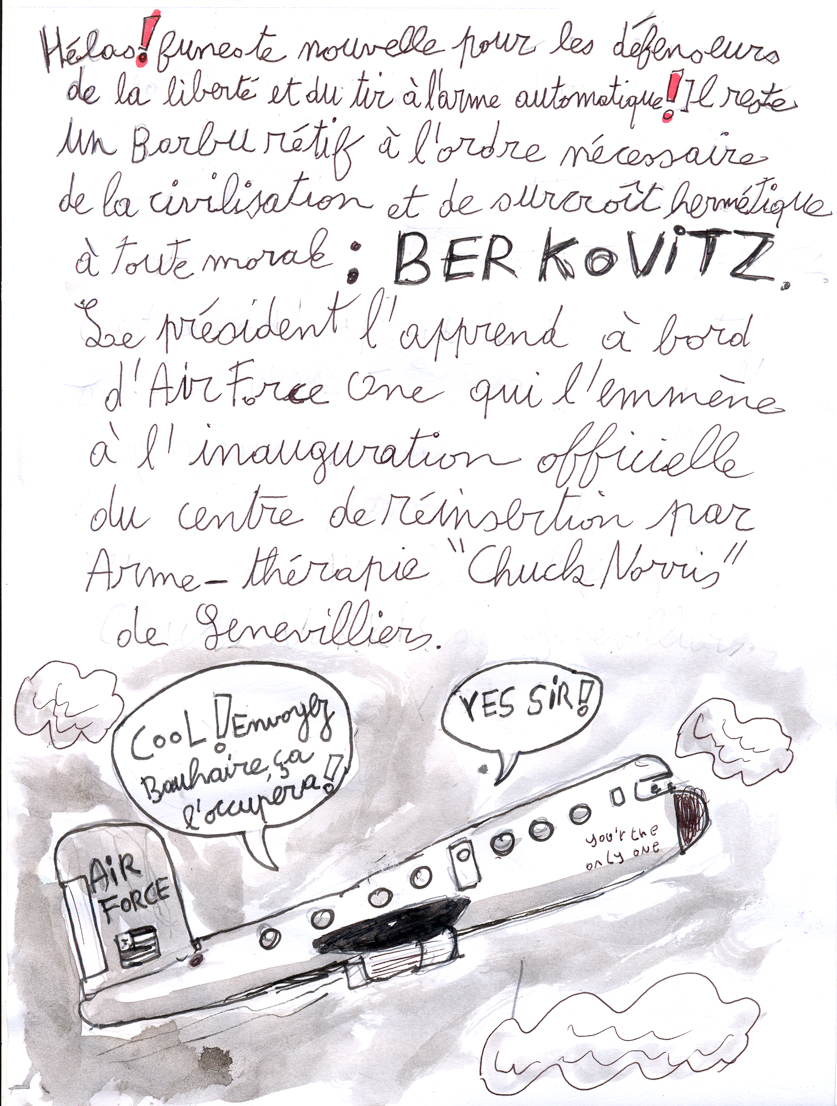 Hélas! funeste nouvelle pour les défenseurs
de la liberté et du tir à l'arme automatique! Il reste
Un Barbu rétif à l'ordre nécessaire
de la civilisation et de surcroît hermétique
à toute morale : BERKOVITZ.
Le président l'apprend à bord
d'Air Force One qui l'emmène
à l'inauguration officielle
du centre de réinsertion par
Arme-thérapie "Chuck Norris"
de Genevilliers.
COOL! Envoyez
Bauhaire, ça
l'occupera!
YES SIR!
you'r the
only one
AIR
FORCE